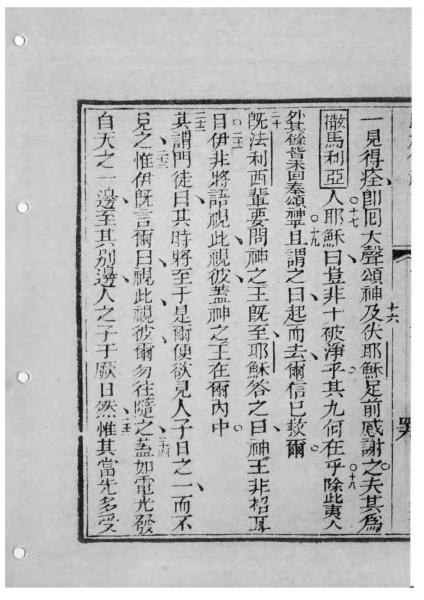 一見得痊卽囘大聲頌神及伏耶穌足前感謝之夫其爲
撒馬利亞人耶穌曰豈非十被淨乎其九何在乎除此夷人
外其餘皆未囘奉頌神乎且謂之曰起而去爾信已救爾
旣法利西輩要問神之王旣至耶穌答之曰神王非招耳
目伊非將語視此視彼蓋神之王在爾內中
其謂門徒曰其時將至于是爾便欲見人子日之一而不
見之惟伊旣言爾曰視此視彼爾勿往隨之蓋如電光發
自天之一邊至其別邊人之子于厥日然惟其當先多受